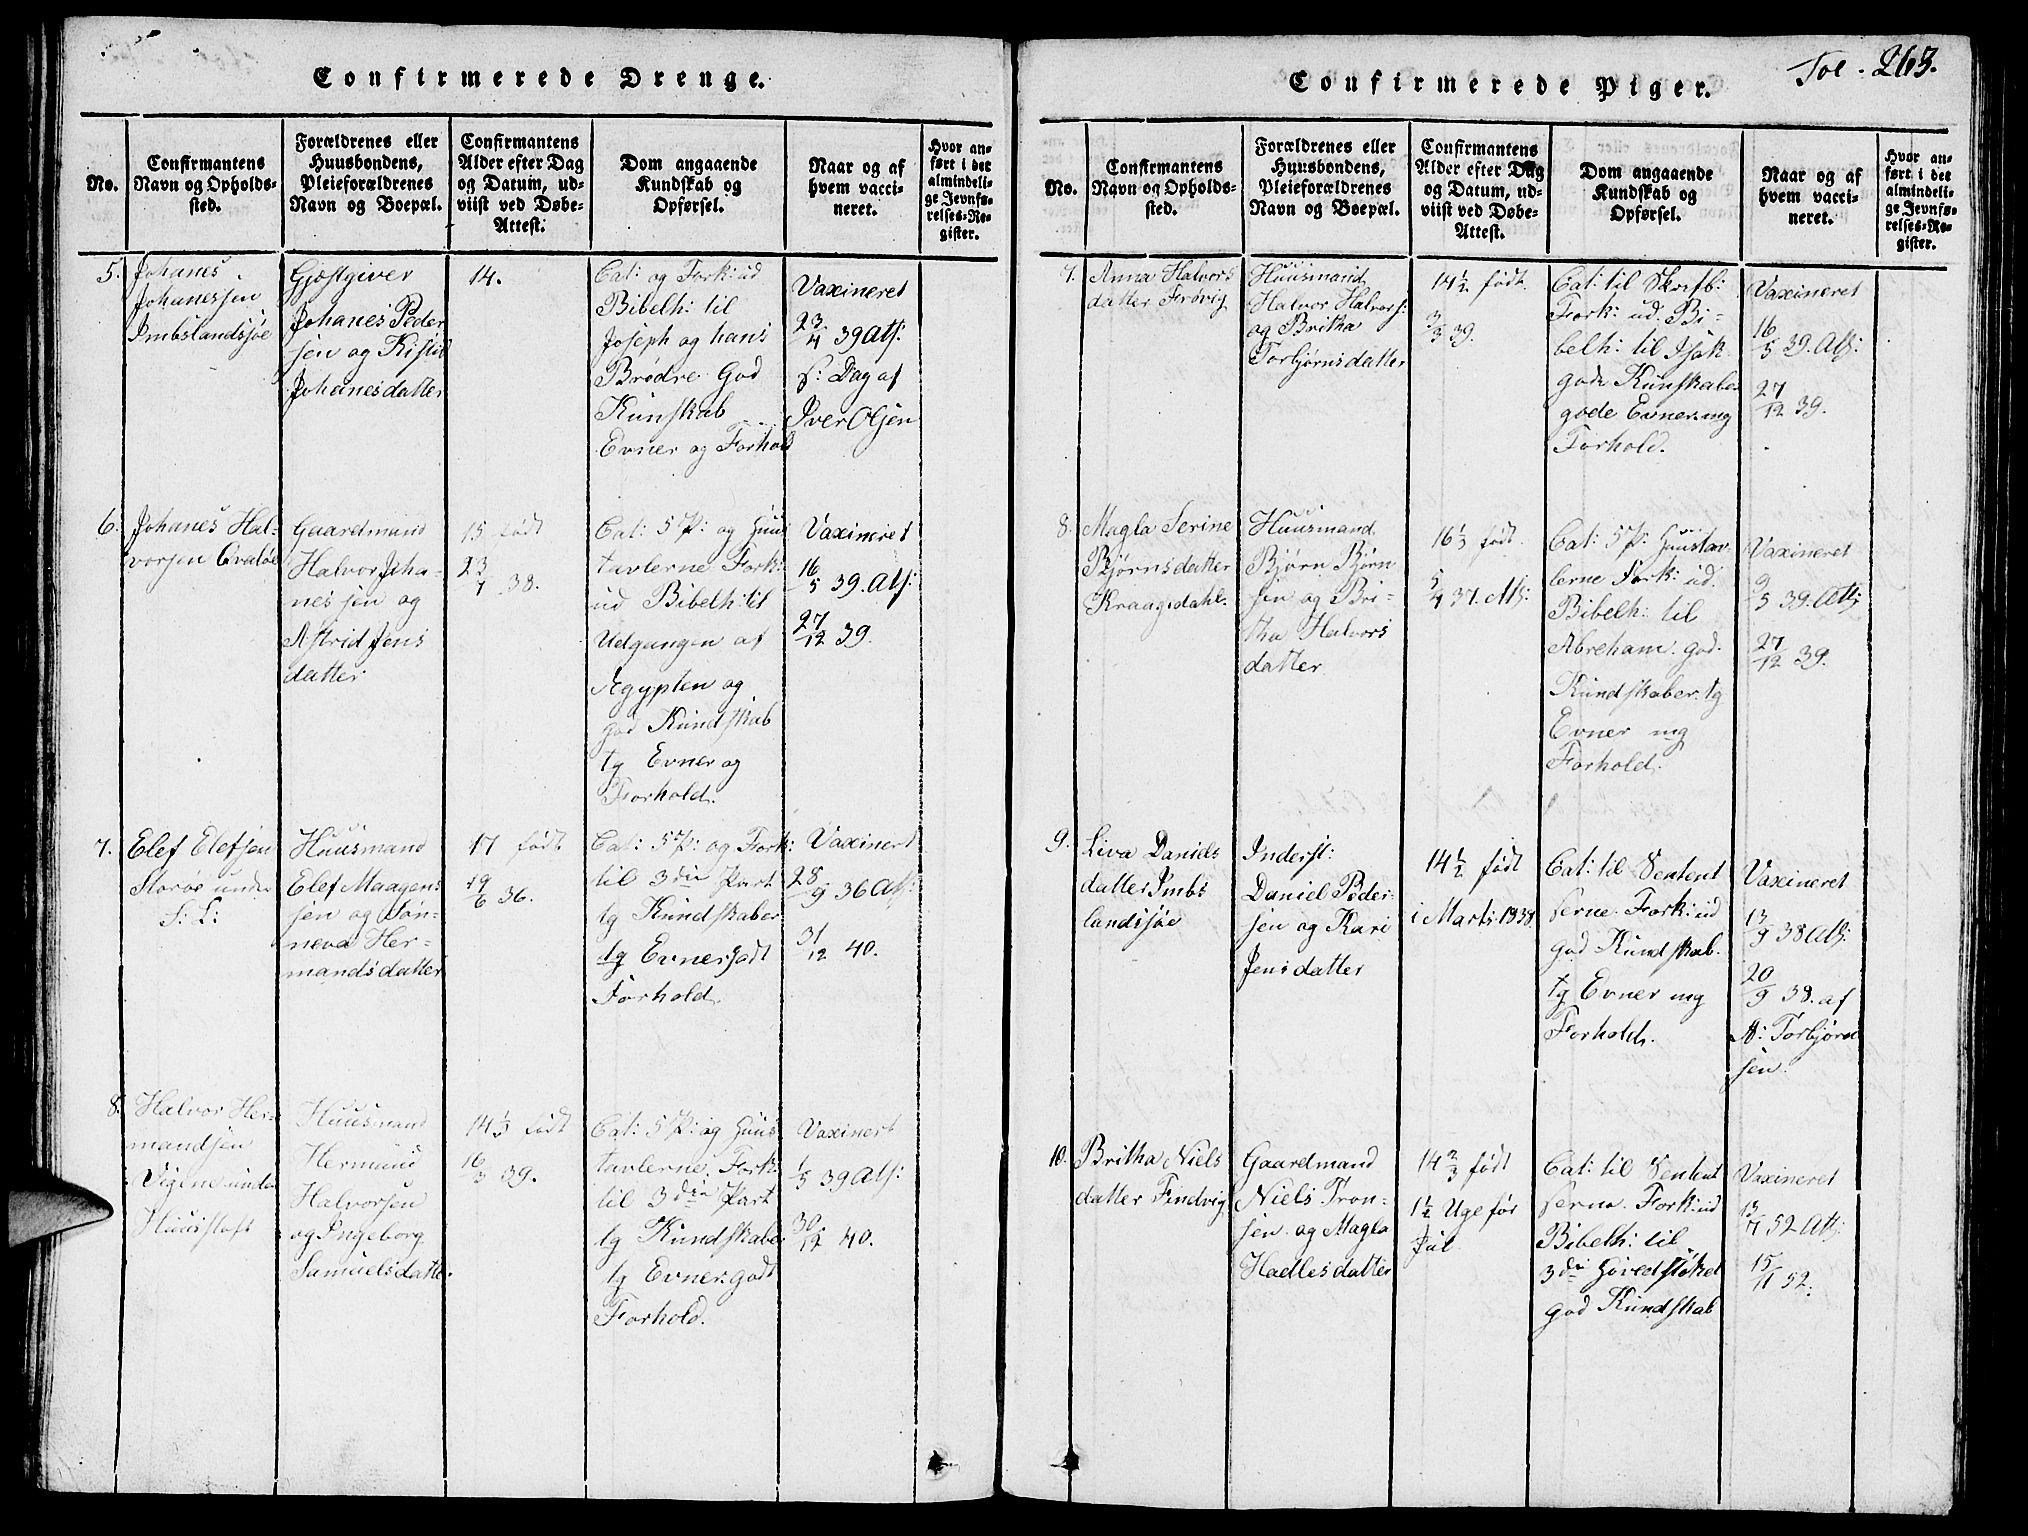 Confirmerede Drenge.
No.
Confirmantens
Navn og Opholds-
sted.
Forældrenes eller
Huusbondens,
Pleieforældrenes
Navn og Boepæl.
Confirmantens
Alder efter Dag
og Datum, ud-
viist ved Døbe-
Attest.
Dom angaaende
Kundskab og
Opførsel.
Naar og af
hvem vacci-
neret.
Hvor an-
ført i det
almindeli-
ge Jevnfø-
relses-Re-
gister.
5.
Johanes
Johanessen
Imbslandsjøe
Gjæstgiver
Johanes Peder
sen og Kisti
Johanesdatter
14.
Cat: og Fork: ud
Bibelh: til
Joseph og hans
Brødre God
Kunskab
Evner og Forhold
Vaxineret
23/4 39 Ats:
s: Dag af
Iver Olsen
6.
Johanes Hal-
vorsen Qvaløe
Gaardmand
Halvor Joha-
nessen og
Astrid Jens
datter
15 født
23/7 38.
Cat: 5 P: og Huus
tavlerne Fork:
ud Bibelh: til
Udgangen af
Ægypten og
god Kundskab
tg Evner og
Forhold.
Vaxineret
16/5 39. Ats:
27/12 39.
7.
Elef Elefsen
Storøe under
S: L:
Huusmand
Elef Maagens
sen og Søn-
neva Her-
mandsdatter
17 født
19/6 36.
Cat: 5 P: og Fork:
til 3die Part
tg Kundskaber
tg Evner godt
Forhold.
Vaxinert
28/9 36 Ats:
31/12 40.
8.
Halvor Her-
mandsen
Vigene unde
Huustoft
Huusmand
Hermand
Halvorsen
og Ingeborg
Samuelsdatte.
14 1/3 født
16/3 39.
Cat: 5 P: og Huus
tavlerne Fork:
til 3die Part
tg Kundskaber
tg Evner godt
Forhold.
Vaxinert
1/5 39 Ats:
30/12 40.
Fol. 263.
Confirmerede Piger.
No.
Confirmantens
Navn og Opholds-
sted.
Forældrenes eller
Huusbondens,
Pleieforældrenes
Navn og Boepæl.
Confirmantens
Alder efter Dag
og Datum, ud-
viist ved Døbe-
Attest.
Dom angaaende
Kundskab og
Opførsel.
Naar og af
hvem vacci-
neret.
Hvor an-
ført i det
almindeli-
ge Jevnfø-
relses-Re-
gister.
7.
Anna Halvors
datter Frøvig
Huusmand
Halvor Halvors:
og Britha
Torbjørnsdatter
14 1/2 født
3/3 39.
Cat: til Skriftb:
Fork: ud. Bi-
belh: til Isak
gode Kunskaber
gode Evner mg
Forhold.
Vaxineret
16/5 39. Ats:
27/12 39.
8.
Magla Serine
Bjørnsdatter
Kraagedahl.
Huusmand
Bjørn Bjørn
sen og Bri-
tha Halvors
datter
16 1/3 født
5/4 37. Ats:
Cat: 5 P: Huustav
lerne Fork: ud.
Bibelh: til
Abreham. god
Kundskaber. tg
Evner mg
Forhold.
Vaxineret
9/5 39. Ats:
27/12 39.
9.
Liva Daniels
datter Imbs
landsjøe
Inderst:
Daniel Peder-
sen og Kari
Jensdatter
14 1/2 født
i Marts 1838.
Cat: til Sentent
serne. Fork: ud
god Kundskab.
tg Evner mg
Forhold.
Vaxineret
13/9 38 Ats:
20/9 38. af
A: Torbjørn
sen.
10.
Britha Niels
datter Findvig
Gaardmand
Niels Tron-
sen og Magla
Hadlesdatter
14 2/3 født
1 1/2 Uge før
Jul
Cat: til Sentent
serne Fork: ud
Bibelh: til
3die Hovedstøket
god Kundskab
Vaxineret
13/7 52 Ats:
15/11 52.